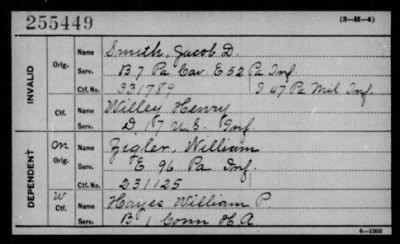 255449 (3-H-4)
INVALID
Orig. Name Smith, Jacob D.
Serv. B. 7 Pa Cav. E 52 Pa Inf.
Ctf. No. 331789 I 47 Pa Mil Inf
Ctf. Name Willey Henry
Serv. D 17 U.S. Inf.
DEPENDENT
On Orig. Name Zigler, William
Serv. E. 96 Pa Inf.
Ctf. No. 231125
W Ctf. Name Hayes William P.
Serv. B 1 Conn H A